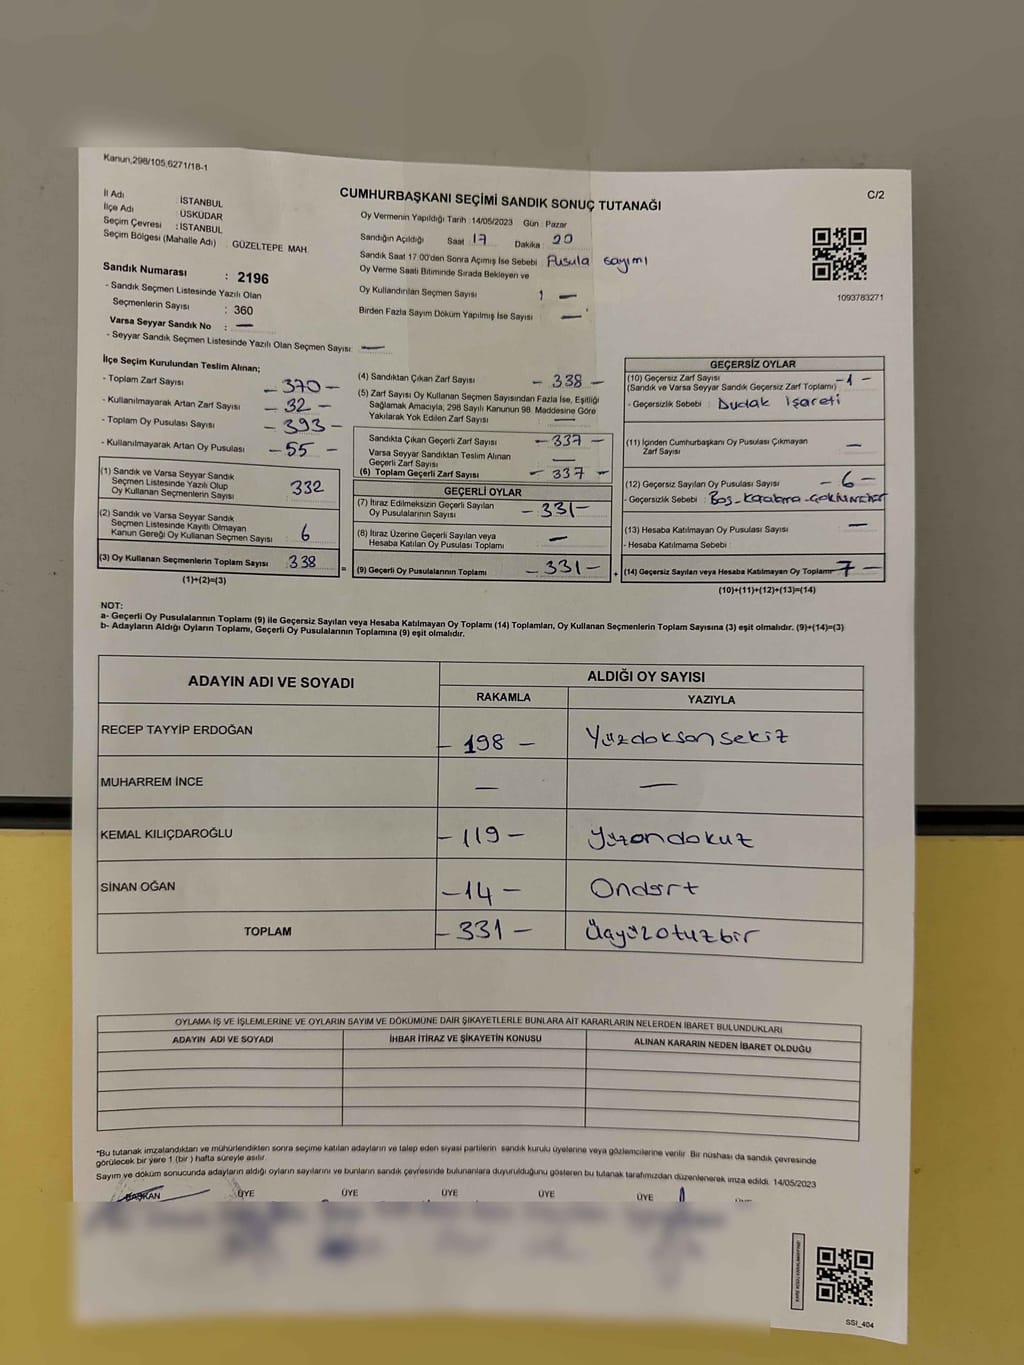 Kanun,298/105,6271/18-1
C/2
CUMHURBAŞKANI SEÇİMİ SANDIK SONUÇ TUTANAĞI
İl Adı : İSTANBUL
İlçe Adı : ÜSKÜDAR
Seçim Çevresi : İSTANBUL
Seçim Bölgesi (Mahalle Adı) : GÜZELTEPE MAH.
Sandık Numarası : 2196
- Sandık Seçmen Listesinde Yazılı Olan
Seçmenlerin Sayısı : 360
Varsa Seyyar Sandık No : —
- Seyyar Sandık Seçmen Listesinde Yazılı Olan Seçmen Sayısı: —
Oy Vermenin Yapıldığı Tarih :14/05/2023 Gün : Pazar
Sandığın Açıldığı Saat 17 Dakika : 20
Sandık Saat 17.00'den Sonra Açımış İse Sebebi : Pusula sayımı
Oy Verme Saati Bitiminde Sırada Bekleyen ve
Oy Kullandırılan Seçmen Sayısı : 1 —
Birden Fazla Sayım Döküm Yapılmış İse Sayısı : —
1093783271
İlçe Seçim Kurulundan Teslim Alınan;
- Toplam Zarf Sayısı — 370 —
- Kullanılmayarak Artan Zarf Sayısı — 32 —
- Toplam Oy Pusulası Sayısı — 393 —
- Kullanılmayarak Artan Oy Pusulası — 55 —
(1) Sandık ve Varsa Seyyar Sandık
Seçmen Listesinde Yazılı Olup
Oy Kullanan Seçmenlerin Sayısı : 332
(2) Sandık ve Varsa Seyyar Sandık
Seçmen Listesinde Kayıtlı Olmayan
Kanun Gereği Oy Kullanan Seçmen Sayısı : 6
(3) Oy Kullanan Seçmenlerin Toplam Sayısı : 338
(1)+(2)=(3)
(4) Sandıktan Çıkan Zarf Sayısı — 338 —
(5) Zarf Sayısı Oy Kullanan Seçmen Sayısından Fazla İse, Eşitliği
Sağlamak Amacıyla, 298 Sayılı Kanunun 98. Maddesine Göre
Yakılarak Yok Edilen Zarf Sayısı : —
Sandıkta Çıkan Geçerli Zarf Sayısı — 337 —
Varsa Seyyar Sandıktan Teslim Alınan
Geçerli Zarf Sayısı —
(6) Toplam Geçerli Zarf Sayısı — 337 —
GEÇERLİ OYLAR
(7) İtiraz Edilmeksizin Geçerli Sayılan
Oy Pusulalarının Sayısı — 331 —
(8) İtiraz Üzerine Geçerli Sayılan veya
Hesaba Katılan Oy Pusulası Toplamı —
= (9) Geçerli Oy Pusulalarının Toplamı — 331 —
GEÇERSİZ OYLAR
(10) Geçersiz Zarf Sayısı
(Sandık ve Varsa Seyyar Sandık Geçersiz Zarf Toplamı) — 1 —
- Geçersizlik Sebebi : Dudak İşareti
(11) İçinden Cumhurbaşkanı Oy Pusulası Çıkmayan
Zarf Sayısı —
(12) Geçersiz Sayılan Oy Pusulası Sayısı — 6 —
- Geçersizlik Sebebi : Boş - Karalama -
(13) Hesaba Katılmayan Oy Pusulası Sayısı —
- Hesaba Katılmama Sebebi :
+ (14) Geçersiz Sayılan veya Hesaba Katılmayan Oy Toplamı 7 —
(10)+(11)+(12)+(13)=(14)
NOT:
a- Geçerli Oy Pusulalarının Toplamı (9) ile Geçersiz Sayılan veya Hesaba Katılmayan Oy Toplamı (14) Toplamları, Oy Kullanan Seçmenlerin Toplam Sayısına (3) eşit olmalıdır. (9)+(14)=(3)
b- Adayların Aldığı Oyların Toplamı, Geçerli Oy Pusulalarının Toplamına (9) eşit olmalıdır.
ADAYIN ADI VE SOYADI ALDIĞI OY SAYISI
RAKAMLA YAZIYLA
RECEP TAYYİP ERDOĞAN — 198 — Yüzdoksansekiz
MUHARREM İNCE — —
KEMAL KILIÇDAROĞLU — 119 — Yüzondokuz
SİNAN OĞAN — 14 — Ondört
TOPLAM — 331 — Üçyüzotuzbir
OYLAMA İŞ VE İŞLEMLERİNE VE OYLARIN SAYIM VE DÖKÜMÜNE DAİR ŞİKAYETLERLE BUNLARA AİT KARARLARIN NELERDEN İBARET BULUNDUKLARI
ADAYIN ADI VE SOYADI İHBAR İTİRAZ VE ŞİKAYETİN KONUSU ALINAN KARARIN NEDEN İBARET OLDUĞU
*Bu tutanak imzalandıktan ve mühürlendikten sonra seçime katılan adayların ve talep eden siyasi partilerin sandık kurulu üyelerine veya gözlemcilerine verilir. Bir nüshası da sandık çevresinde
görülecek bir yere 1 (bir ) hafta süreyle asılır.
Sayım ve döküm sonucunda adayların aldığı oyların sayılarını ve bunların sandık çevresinde bulunanlara duyurulduğunu gösteren bu tutanak tarafımızdan düzenlenerek imza edildi. 14/05/2023
BAŞKAN ÜYE ÜYE ÜYE ÜYE ÜYE
SSI_404